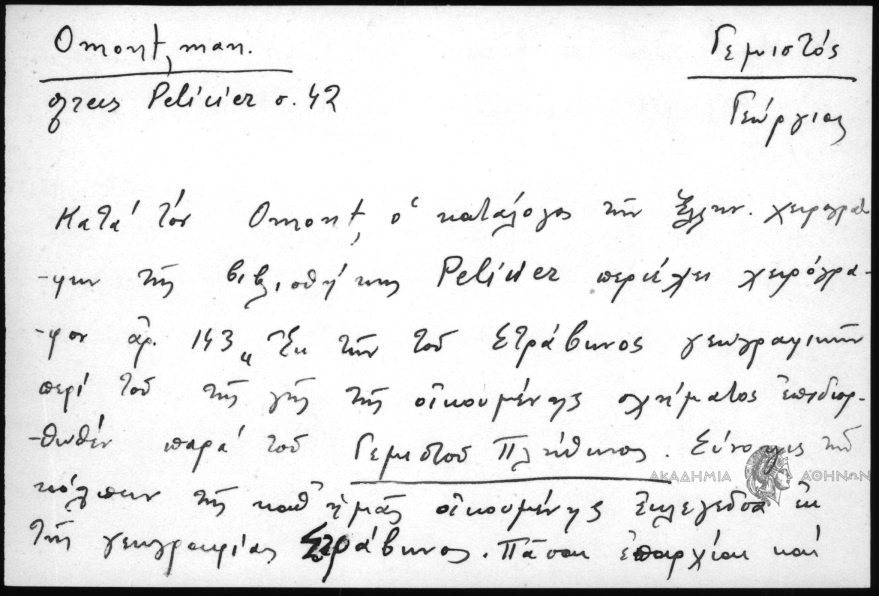 Omont, man.
grecs Pelicier σ. 42
Γεμιστός
Γεώργιος
Κατά τόν Omont, ὁ κατάλογος τῶν Ἑλλην. χειρογρά-
-φων τῆς βιβλιοθήκης Pelicier περιέχει χειρόγρα-
-φον ἀρ. 143 „Ἐκ τῶν τοῦ Στράβωνος γεωγραφικῶν
περί τοῦ τῆς γῆς τῆς οἰκουμένης σχήματος ἐπιδιορ-
-θωθέν παρά τοῦ Γεμιστοῦ Πλήθωνος. Σύνοψις τῶν
ΑΚΑΔΗΜΙΑ ΑΘΗΝΩΝ
κόλπων τῆς καθ' ἡμᾶς οἰκουμένης ἐκλεγεῖσα ἐκ
τῆς γεωγραφίας Στράβωνος. Πᾶσαι ἐπαρχίαι καί